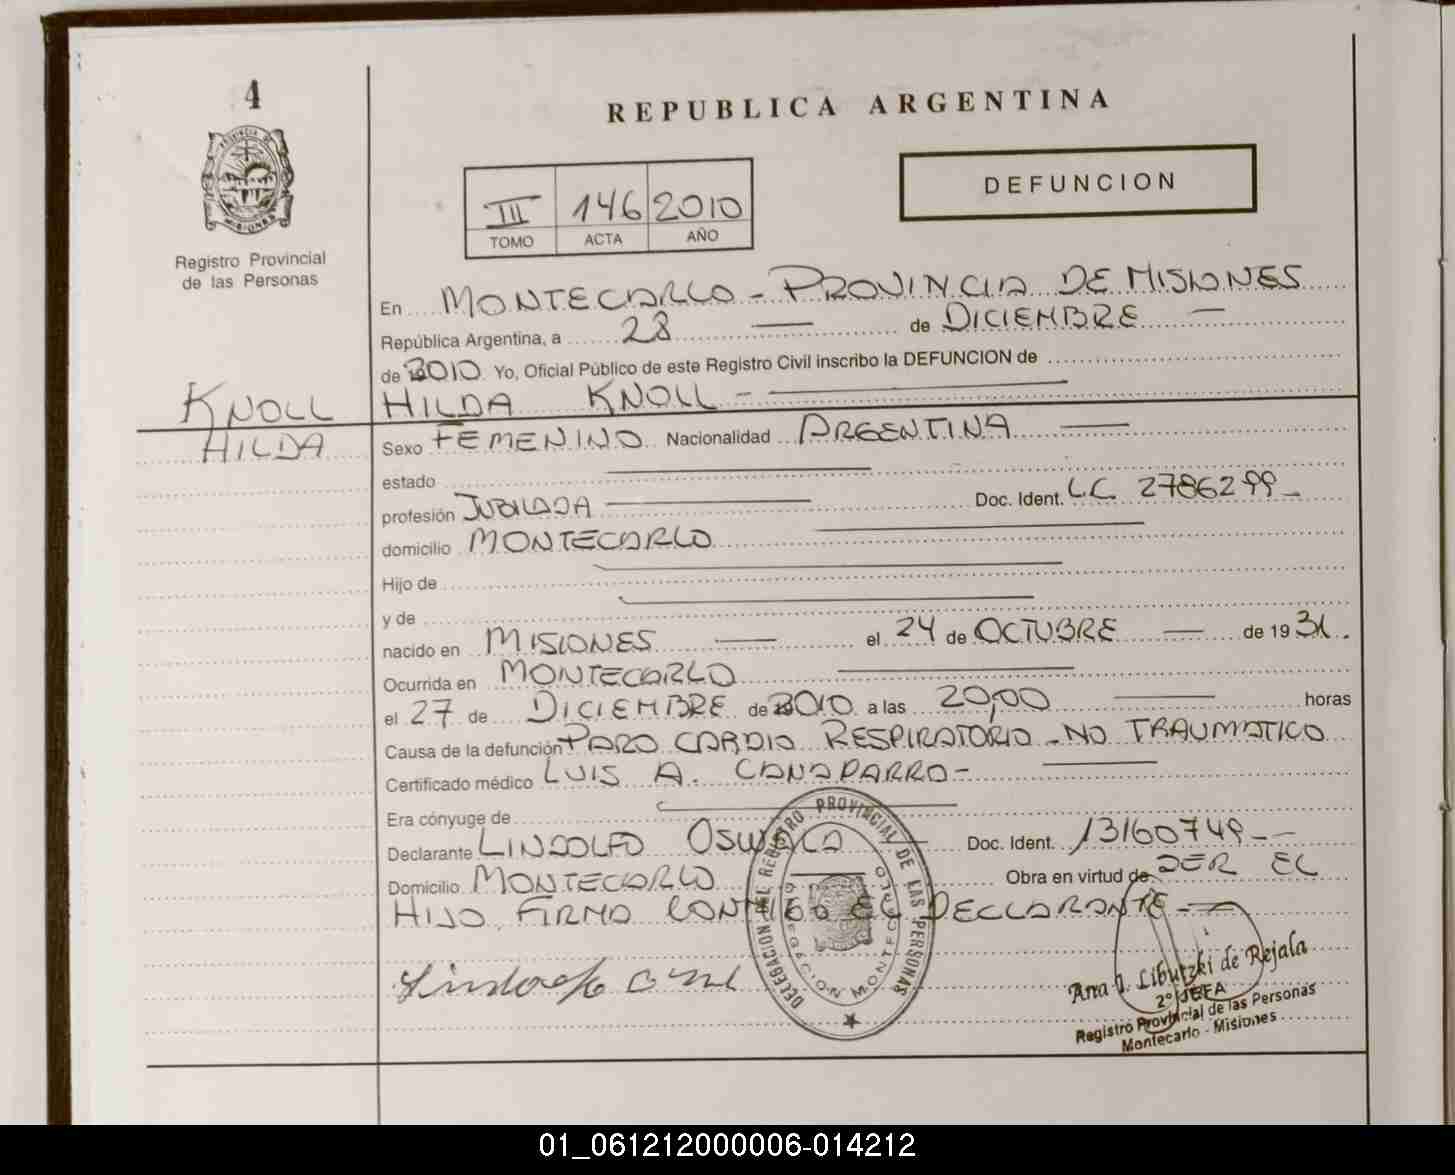 4
PROVINCIA DE
MISIONES
Registro Provincial
de las Personas
REPUBLICA ARGENTINA
III 146 2010
TOMO ACTA AÑO
DEFUNCION
En MONTECARLO - PROVINCIA DE MISIONES
República Argentina, a 28 de DICIEMBRE
de 2010 Yo, Oficial Público de este Registro Civil inscribo la DEFUNCION de
KNOLL
HILDA
HILDA KNOLL -
Sexo FEMENINO Nacionalidad ARGENTINA
estado
profesión JUBILADA Doc. Ident. L.C. 2786299-
domicilio MONTECARLO
Hijo de
y de
nacido en MISIONES el 24 de OCTUBRE de 19 31.
Ocurrida en MONTECARLO
el 27 de DICIEMBRE de 2010 a las 20,00 horas
Causa de la defunción PARO CARDIO RESPIRATORIO - NO TRAUMATICO
Certificado médico LUIS A. CANAPARRO -
Era cónyuge de
Declarante LINDOLFO OSWALD Doc. Ident. 13160749--
Domicilio MONTECARLO Obra en virtud de SER EL
HIJO FIRMA CONMIGO EL DECLARANTE -
DELEGACION DEL REGISTRO PROVINCIAL DE LAS PERSONAS
DELEGACION MONTECARLO
Ana I. Libutzki de Rejala
2° JEFA
Registro Provincial de las Personas
Montecarlo - Misiones
01_061212000006-014212